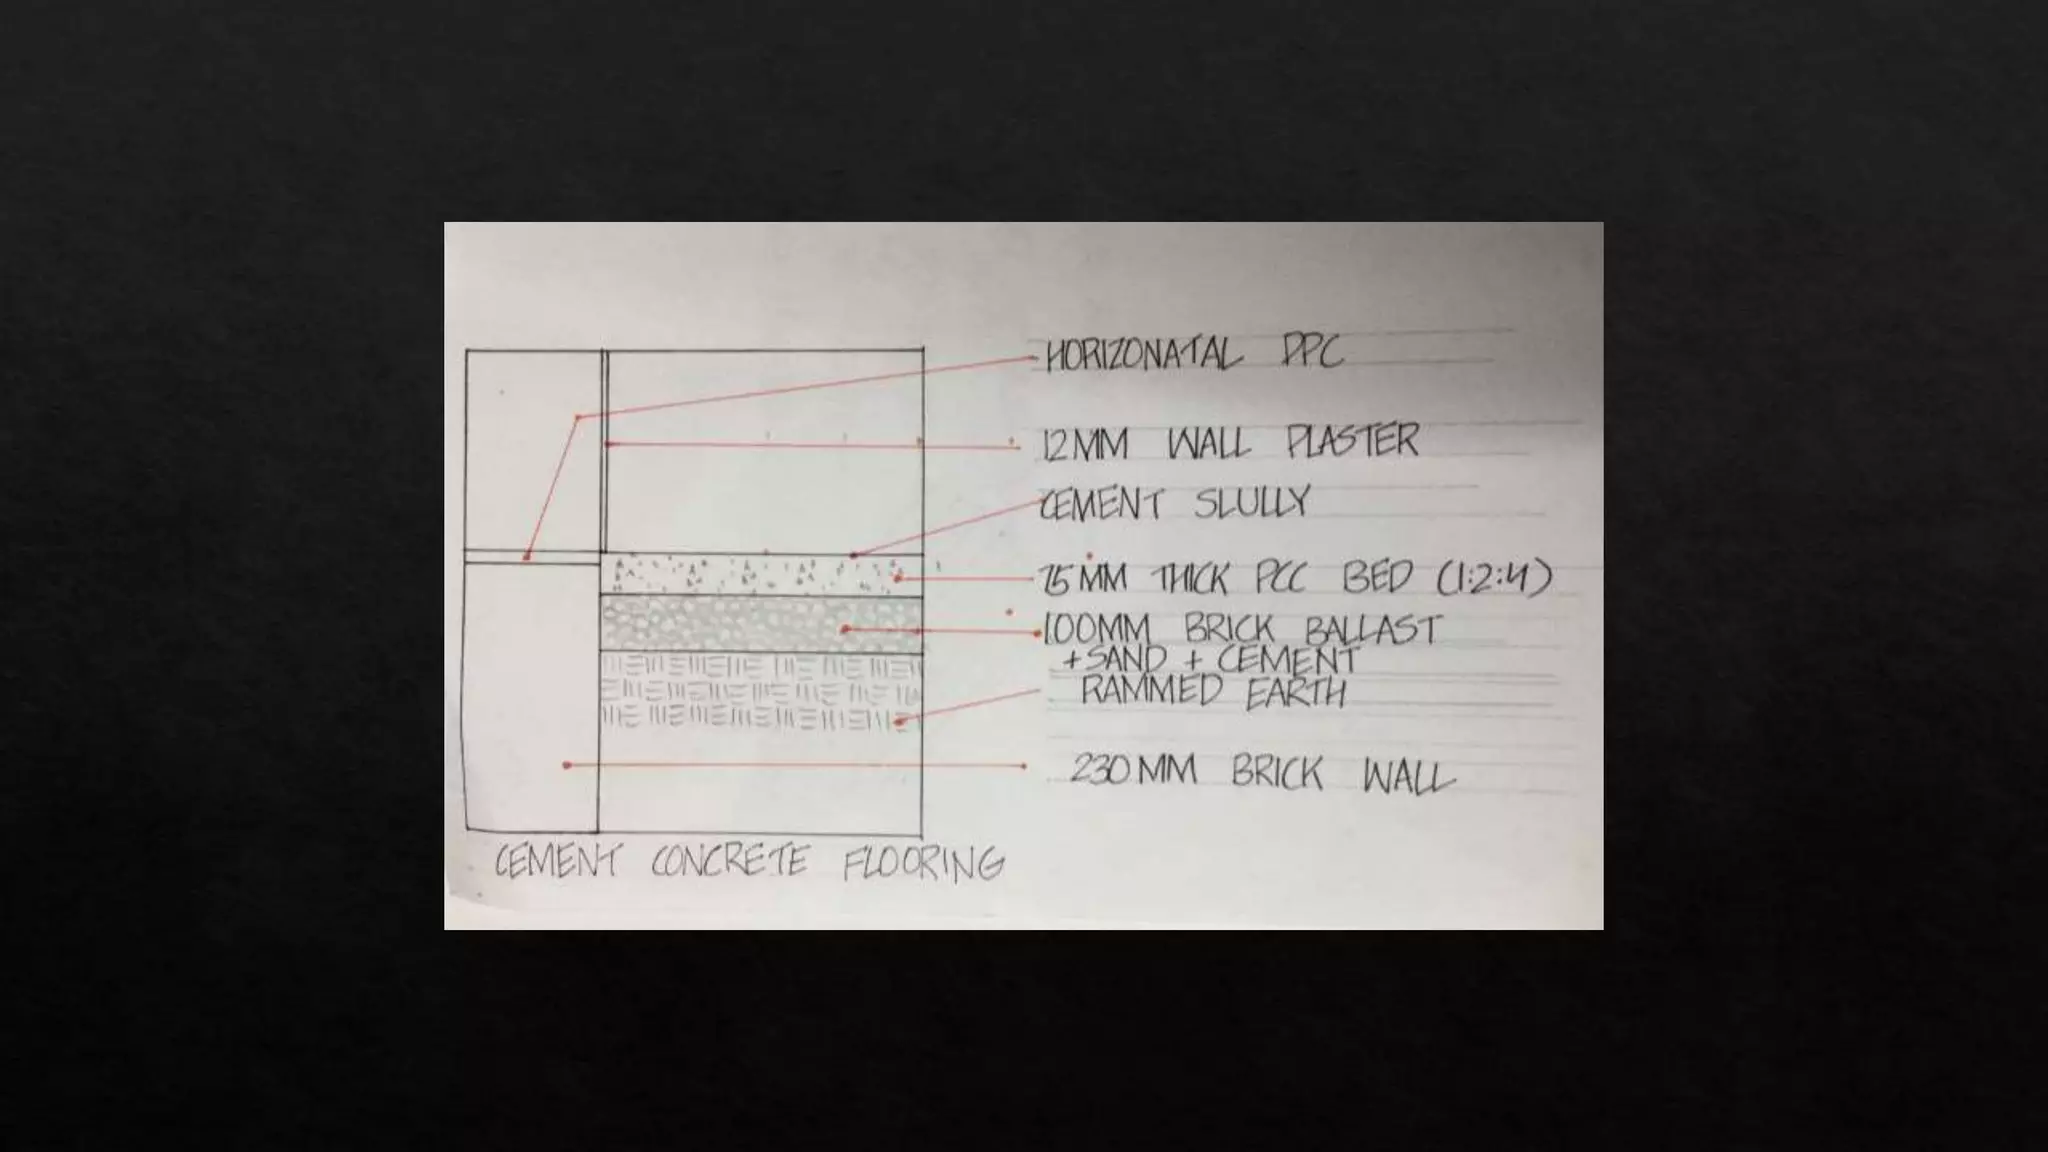 HORIZONATAL DPC
12MM WALL PLASTER
CEMENT SLULLY
75MM THICK PCC BED (1:2:4)
100MM BRICK BALLAST
+SAND + CEMENT
RAMMED EARTH
230MM BRICK WALL
CEMENT CONCRETE FLOORING